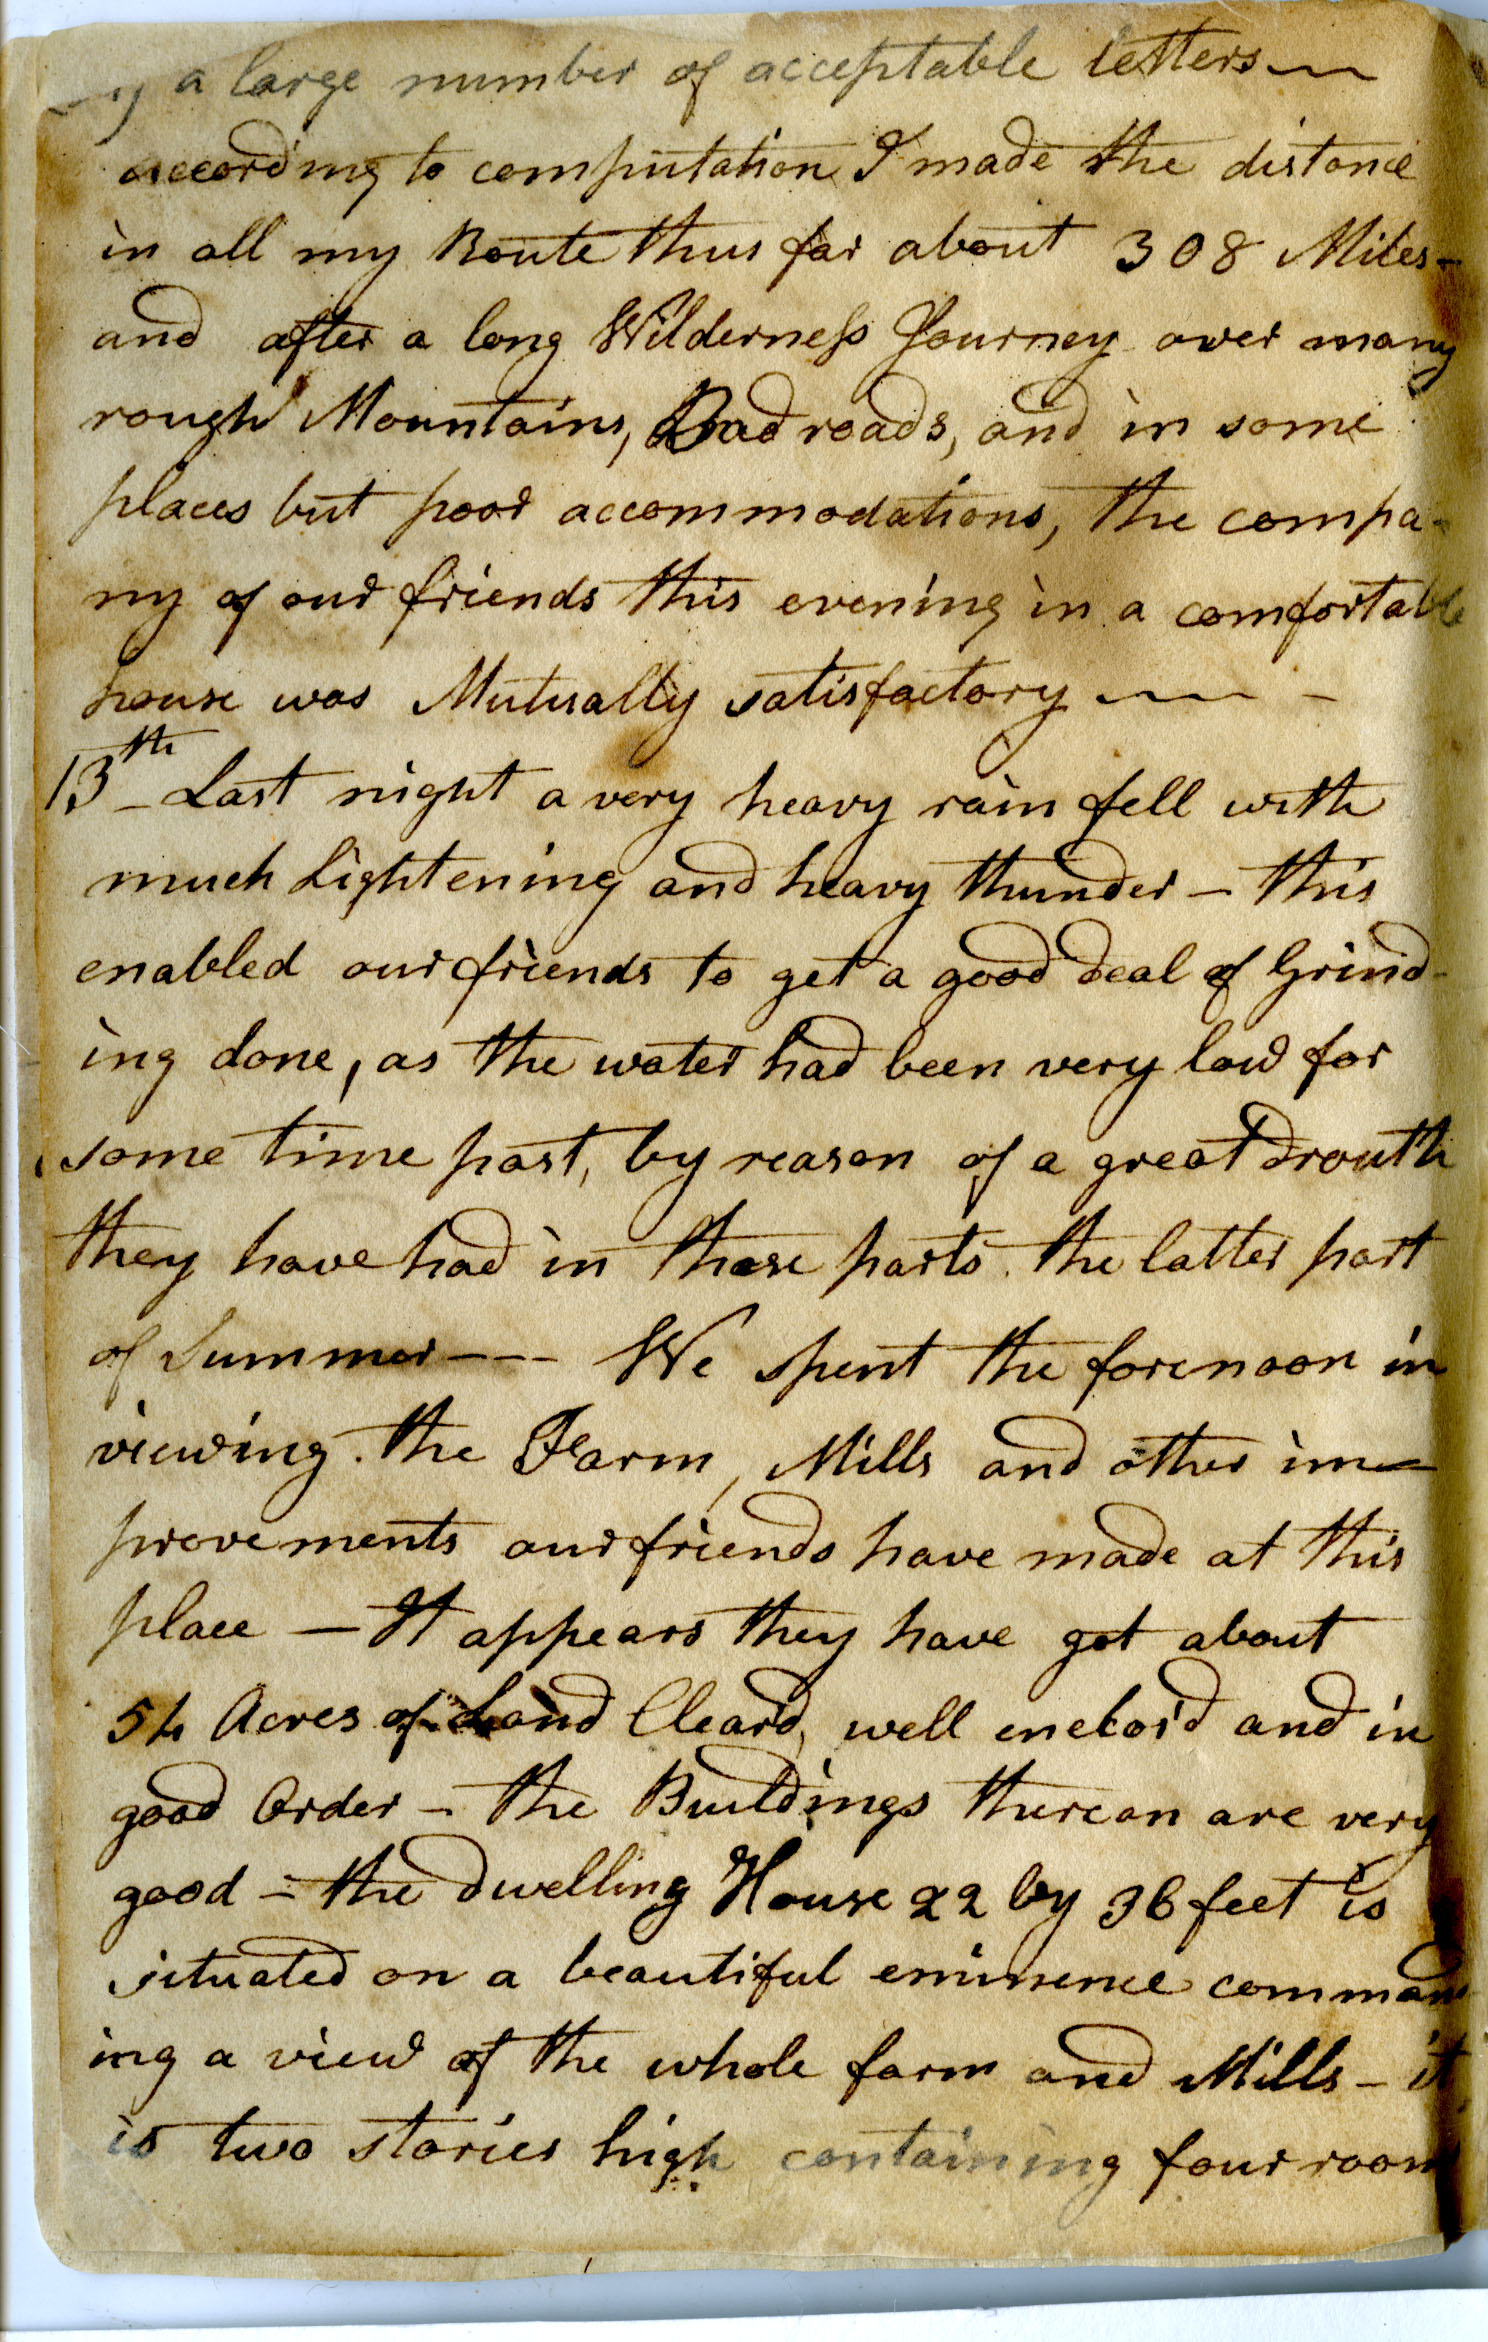 a large number of acceptable letters
according to computation I made the distance
in all my Route thus far about 308 Miles-
and after a long Wilderness Journey over many
rough Mountains, Bad roads, and in some
places but poor accommodations, the compa-
ny of our friends this evening in a comfortable
house was Mutually satisfactory — -
13th - Last night a very heavy rain fell with
much Lightening and heavy thunder - this
enabled our friends to get a good deal of Grind-
ing done, as the water had been very low for
some time past, by reason of a great drouth
they have had in these parts the latter part
of Summer --- We spent the forenoon in
viewing the Farm, Mills and other im-
provements our friends have made at this
place - It appears they have got about
54 Acres of Land Clear'd, well enclos'd and in
good Order - the Buildings thereon are very
good - the dwelling House 22 by 36 feet is
situated on a beautiful eminence command
ing a view of the whole farm and Mills - it
is two stories high containing four room